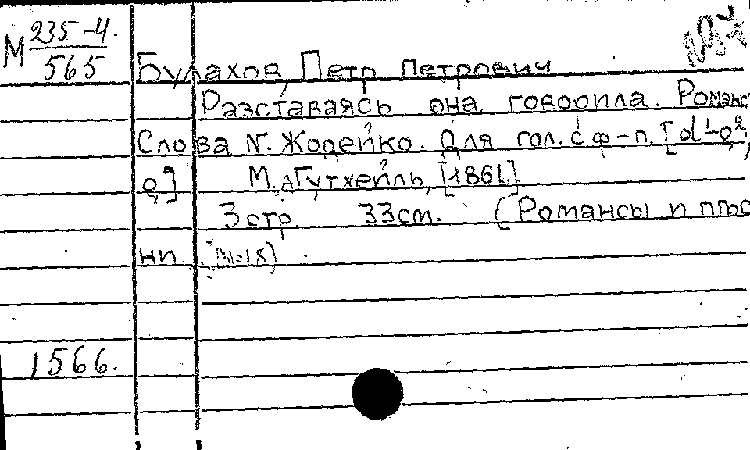 М 235-4.
565
Булахов, Петр Петрович
Разставаясь она говорила. Романс
Слова N. Жодейко. Для гол. с ф-п. [d¹-g²;
g] М. А. Гутхейль, [1861]
3 стр. 33 см. (Романсы и пѣс
ни
1566.